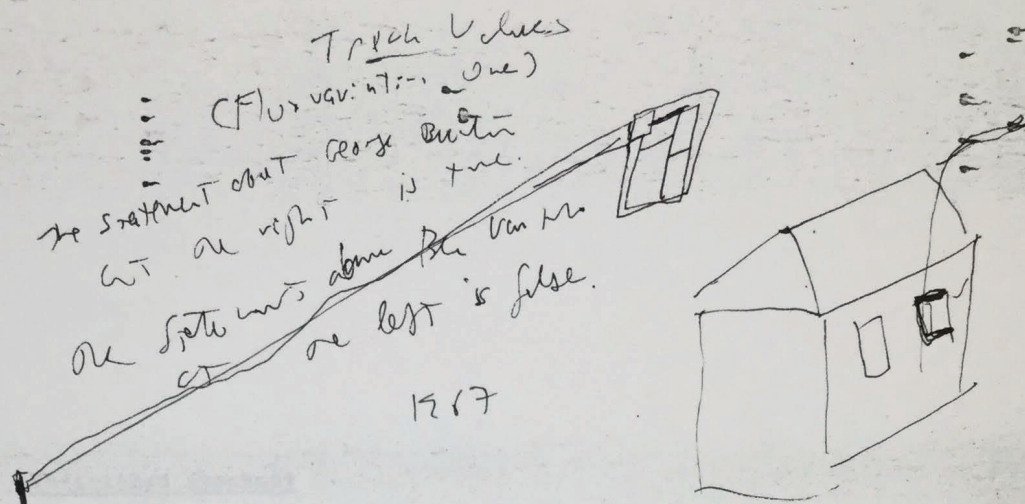 Truth Values
(Flux variation One)
The statement about George Brecht
at the right is true.
The statement about Ben Vautier
at the left is false.
1967